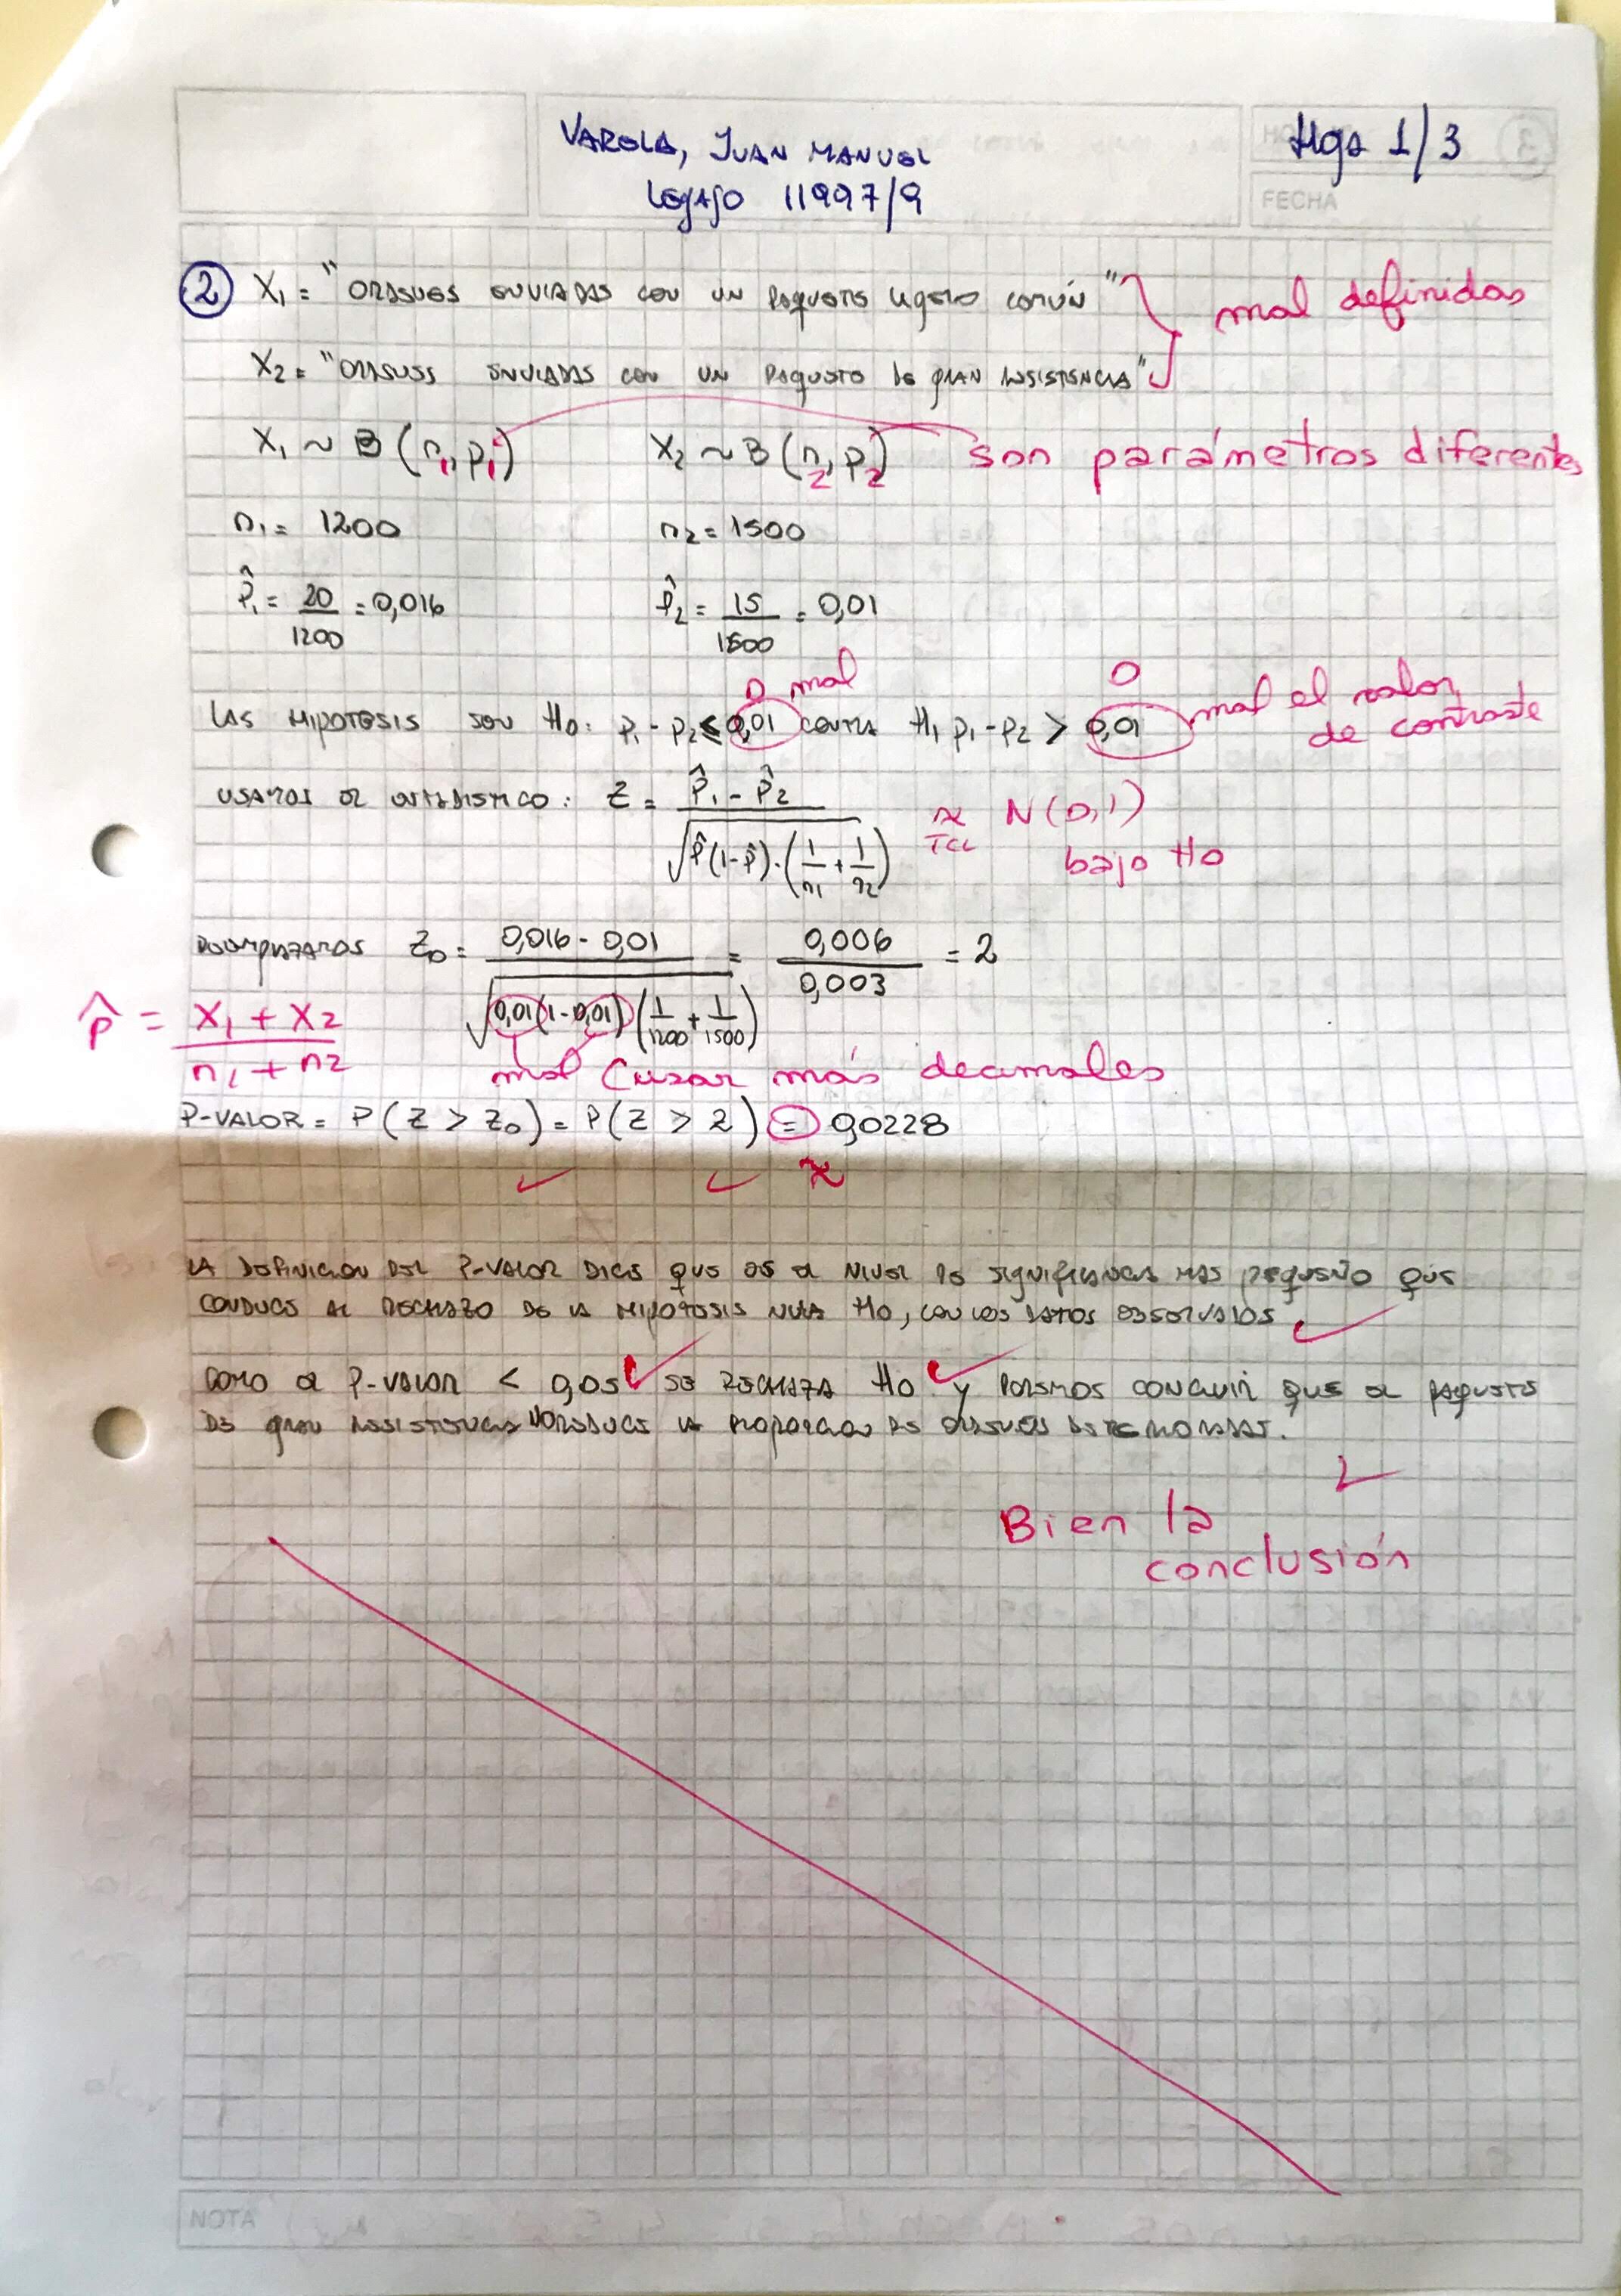 VAROLA, JUAN MANUEL
Hga 1/3
HOJA
3
LEGAJO 11997/9
FECHA
2 X₁ = "ORDENES ENVIADAS CON UN PAQUETE LIGERO COMÚN" mal definidas
X₂ = "ORDENES ENVIADAS CON UN PAQUETE DE GRAN RESISTENCIA"
X₁ ~ B (n₁, p₁) X₂ ~ B (n₂, p₂) son parámetros diferentes
n₁ = 1200 n₂ = 1500
p̂₁ = 20/1200 = 0,016 p̂₂ = 15/1500 = 0,01
0 mal 0
LAS HIPOTESIS SON H₀: p₁ - p₂ ≤ 0,01 CONTRA H₁ p₁ - p₂ > 0,01 mal el valor de contraste
USAMOS EL ESTADISTICO: Z = (p̂₁ - p̂₂) / √(p̂(1-p̂)·(1/n₁ + 1/n₂)) ≈ TCL N(0,1) bajo H₀
REEMPLAZAMOS Z₀ = (0,016 - 0,01) / √(0,01(1-0,01)(1/1200 + 1/1500)) = 0,006/0,003 = 2
p̂ = (X₁ + X₂)/(n₁ + n₂)
mal (usar más decimales
P-VALOR = P(Z > Z₀) = P(Z > 2) = 0,0228
≈
LA DEFINICION DEL P-VALOR DICE QUE ES EL NIVEL DE SIGNIFICANCIA MAS PEQUEÑO QUE
CONDUCE AL RECHAZO DE LA HIPOTESIS NULA H₀, CON LOS DATOS OBSERVADOS
COMO EL P-VALOR < 0,05 SE RECHAZA H₀ Y PODEMOS CONCLUIR QUE EL PAQUETE
DE GRAN RESISTENCIA REDUCE LA PROPORCION DE ORDENES DETERIORADAS.
Bien la
conclusión
NOTA